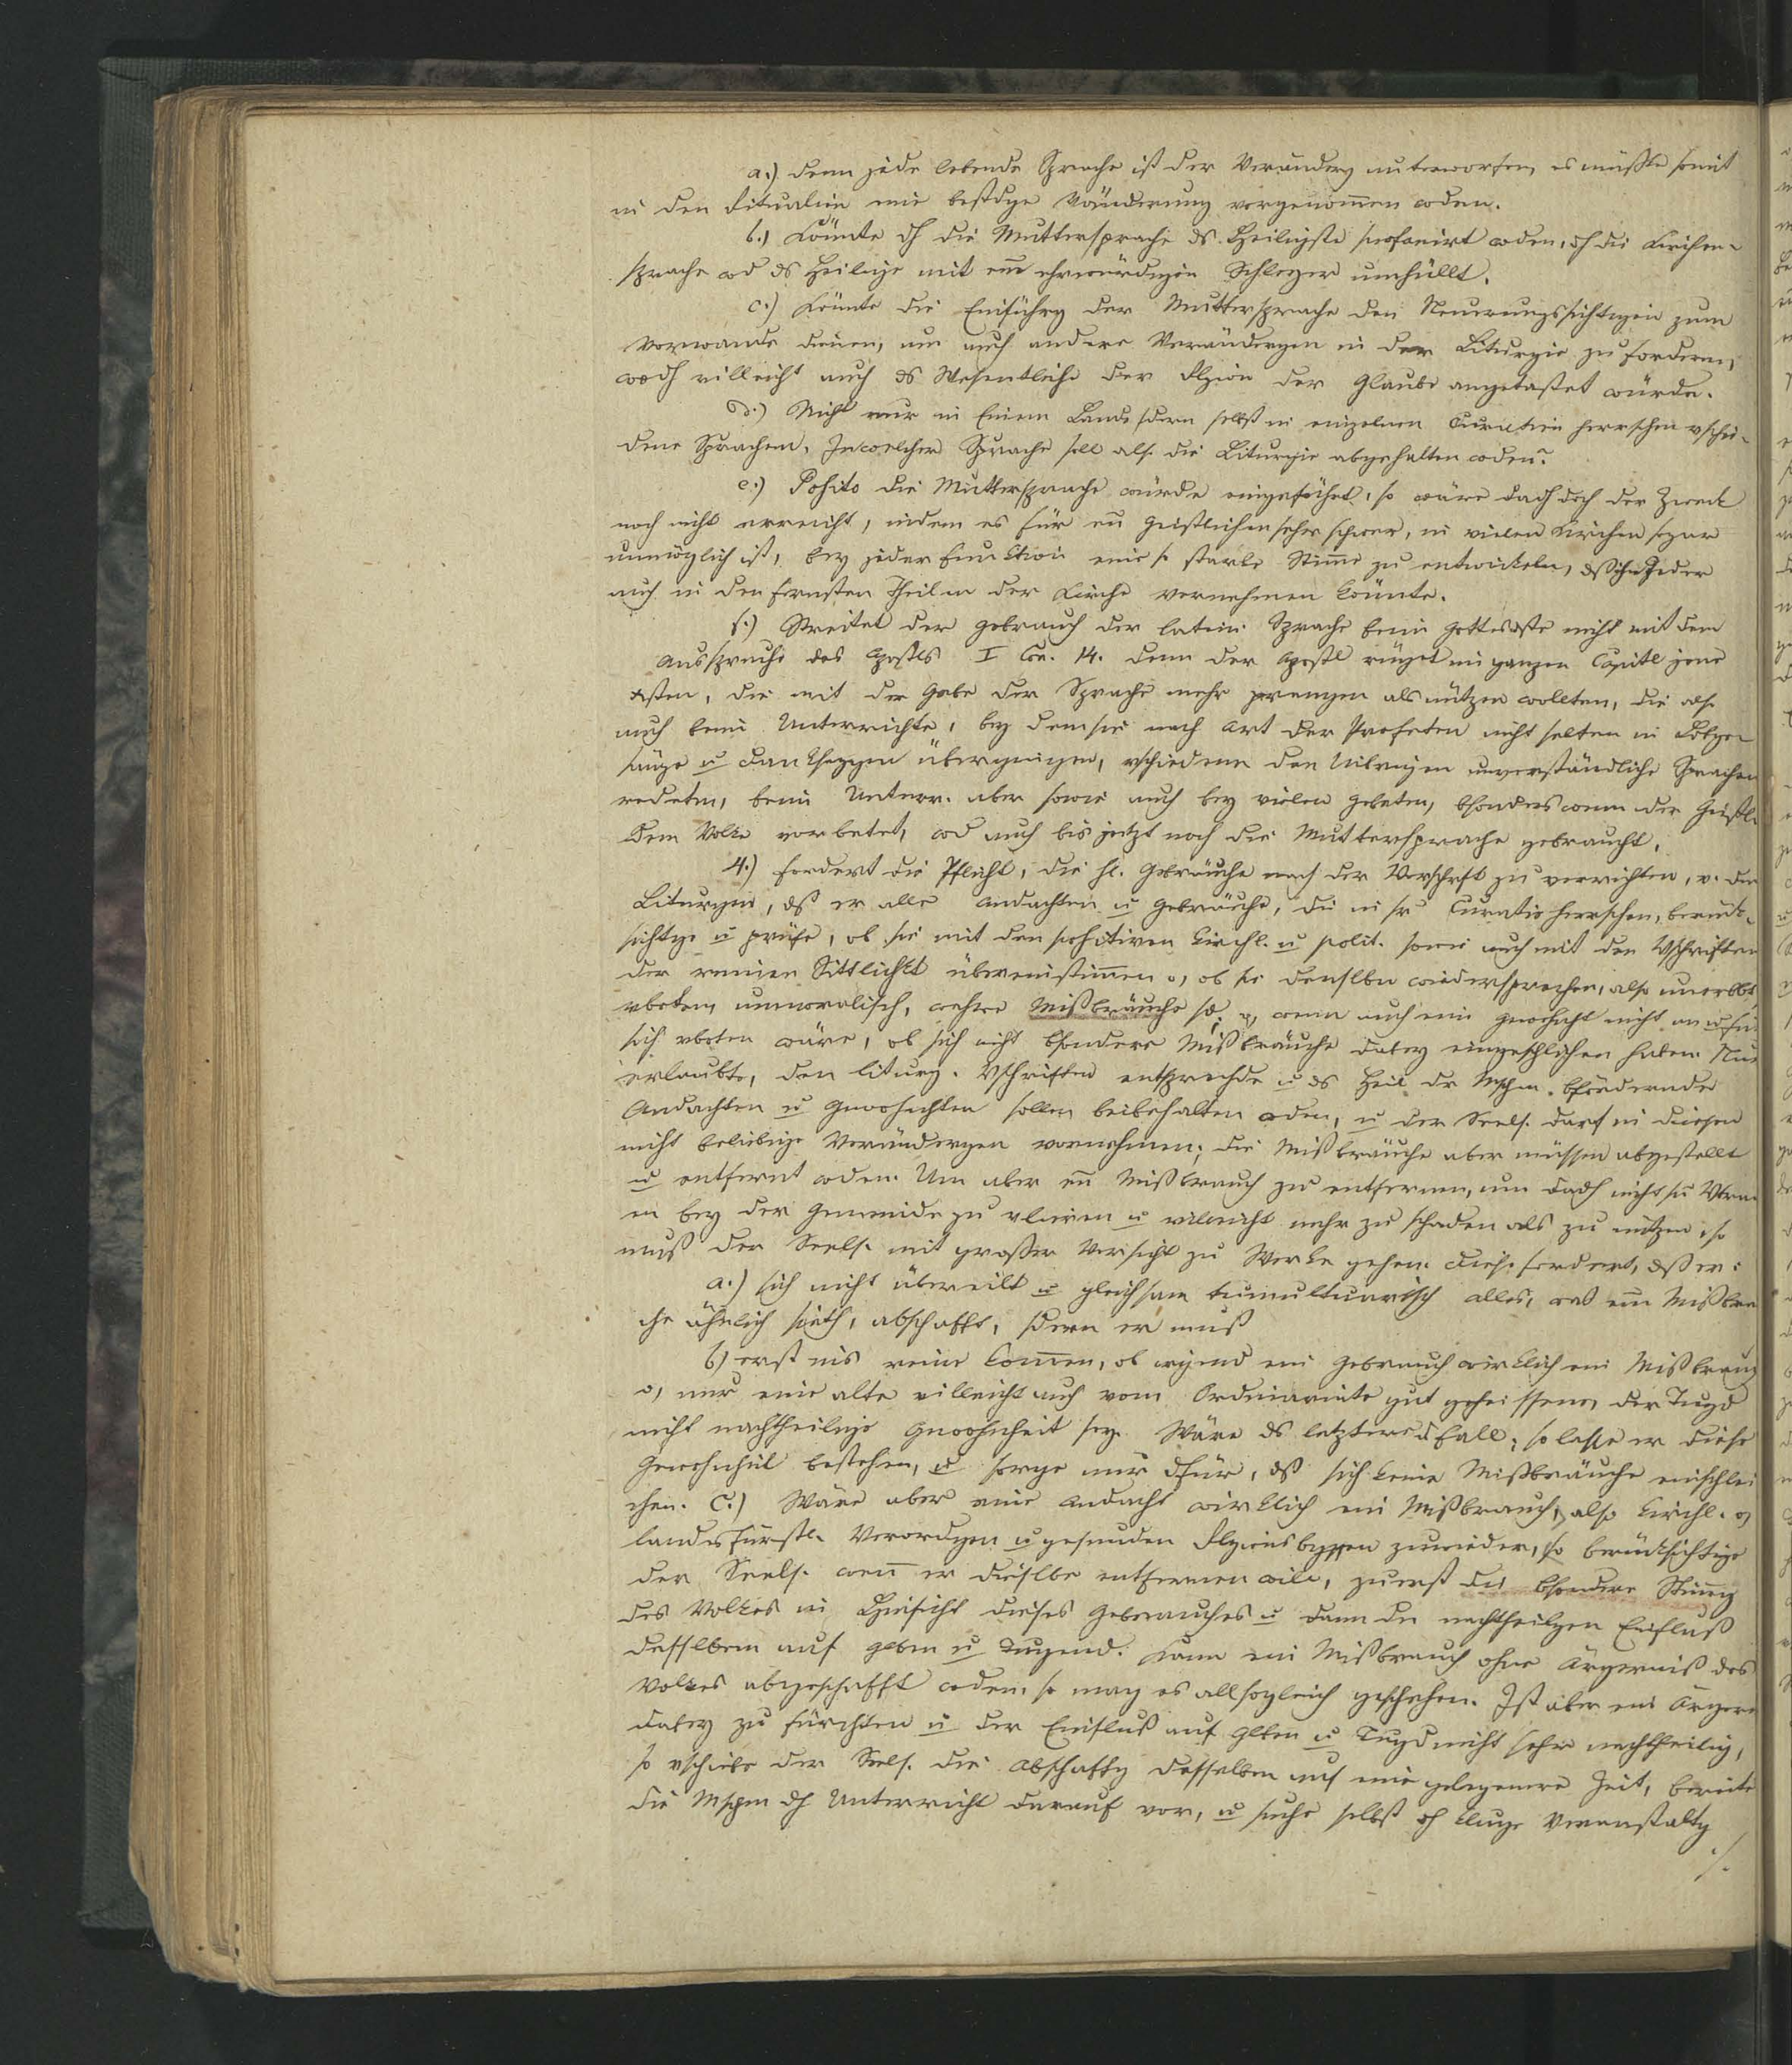 a.) denn jede lebende Sprache ist der Veränderg unterworfen, es müßte somit
in den Ritualien eine bestdge Vänderung vorgenommen wden.
b.) Könnte dh die Muttersprache ds Heiligste profanirt wden, dh die Kirchen-
sprache wd ds Heilige mit eim ehrwürdigen Schleyer umhüllt.
c.) Könnte die Einführg der Muttersprache den Neuerungssüchtigen zum
Vorwande dienen, um auch andere Verändergen in der Liturgie zu fordern,
wodh villeicht auch ds Wesentliche der Rlgion der Glaube angetastet würde.
d.) Nicht nur in Einem Lande sdern selbst in einzelnen Curatien herrschen vschie-
dene Sprachen, In welcher Sprache soll also die Liturgie abgehalten wden?
e.) Posito die Muttersprache würde eingeführt, so wäre dadh doch der Zweck
noch nicht erreicht, indem es für en Geistlichen sehr schwer, in vielen Kirchen sogar
unmöglich ist, bey jeder Funktion eine so starke Stimme zu entwickeln, dß ihn Jeder
auch in den fernsten Theilen der Kirche vernehmen könnte.
f.) Streitet der Gebrauch der latein. Sprache beim Gottesdste nicht mit dem
Ausspruche des Apostls I Cor. 14. denn der Apostl rüget im ganzen Capitl jene
xsten, die mit der Gabe der Sprache mehr prangen als nützen wollten, die also
auch beim Unterrichte, bey dem sie nach Art der Profeten nicht selten in Lobge-
sänge u Danksaggen übergingen, vschiedene den Uibrigen unverständliche Sprachen
redeten, beim Unterr. aber sowie auch bey vielen Gebeten, bsonders wenn der Geistl.
dem Volke vorbetet, wd auch bis jetzt noch die Muttersprache gebraucht.
4.) fordert die Pflicht, die hl. Gebräuche nach der Vorschrft zu verrichten, v. dem
Liturgen, dß er alle Andachten u Gebräuche, die in sr Curatie herrschen, berück-
sichtge u prüfe, ob sie mit den positiven kirchl. u polit. sowie auch mit den Vschriften
der reinen Sittlichkt übereinstimmen o, ob sie denslben wiedersprechen, also unerlbt
vboten, unmoralisch, wahre Mißbräuche wenn auch eine Gwohnht nicht an u für
sich vboten wäre, ob sich nicht bsondere Mißbräuche dabey eingeschlichen haben. Nur
erlaubte, den liturg. Vschriften entsprechde u ds Heil dr Mschen bfördernde
Andachten u Gwohnhten sollen beibehalten wden, u der Seels. darf in diesen
nicht beliebige Verändergen vornehmen; die Mißbräuche aber müssen abgestellt
u entfernt wden. Um aber en Mißbrauch zu entfernen, um dadh nicht sn Vtrau-
en bey der Gemeinde zu vlieren u vilmeicht mehr zu schaden als zu nützen, so
muß der Seels. mit großer Vorsicht zu Werke gehen. Dieß fordert, dß er:
a.) sich nicht übereilt u gleichsam tumultuarisch alles, was eim Mißbrau-
che ähnlich sieth, abschafft, sdern er muß
b) erst ins reine kommen, ob irgend ein Gebrauch wirklich ein Mißbrauch
o, nur eine alte villeicht auch vom Ordinariate gut geheissene, der Tugd
nicht nachtheilige Gwohnheit sey. Wäre ds letztere d Fall, so lasse er diese
Gewohnheit bestehen, u sorge nur dfür, dß sich keine Mißbräuche einschlei
chen. C.) Wäre aber eine Andacht wirklich ein Mißbrauch, also kirchl. o,
landesfürstl. Verordgen u gesunden Rlgionsbgffen zuwieder, so berücksichtige
der Seels. wenn er dieslbe entfernen will, zuerst die bsondere Stimmg
des Volkes in Hinsicht dieses Gebrauches u dann den nachtheilgen Einfluß
desslben auf Glben u Tugend. Kann ein Mißbrauch ohne Ärgerniß des
Volkes abgeschafft wden, so mag es allsogleich geschehen. Ist aber ein Ärgern
dabey zu fürchten u der Einfluß auf Glben u Tugd nicht sehr nachtheilig,
so vschiebe der Seels. die Abschaffg desselben auf eine gelegenere Zeit, bereite
die Mschen dh Unterricht darauf vor, u suche selbst dh kluge Veranstaltg
./.